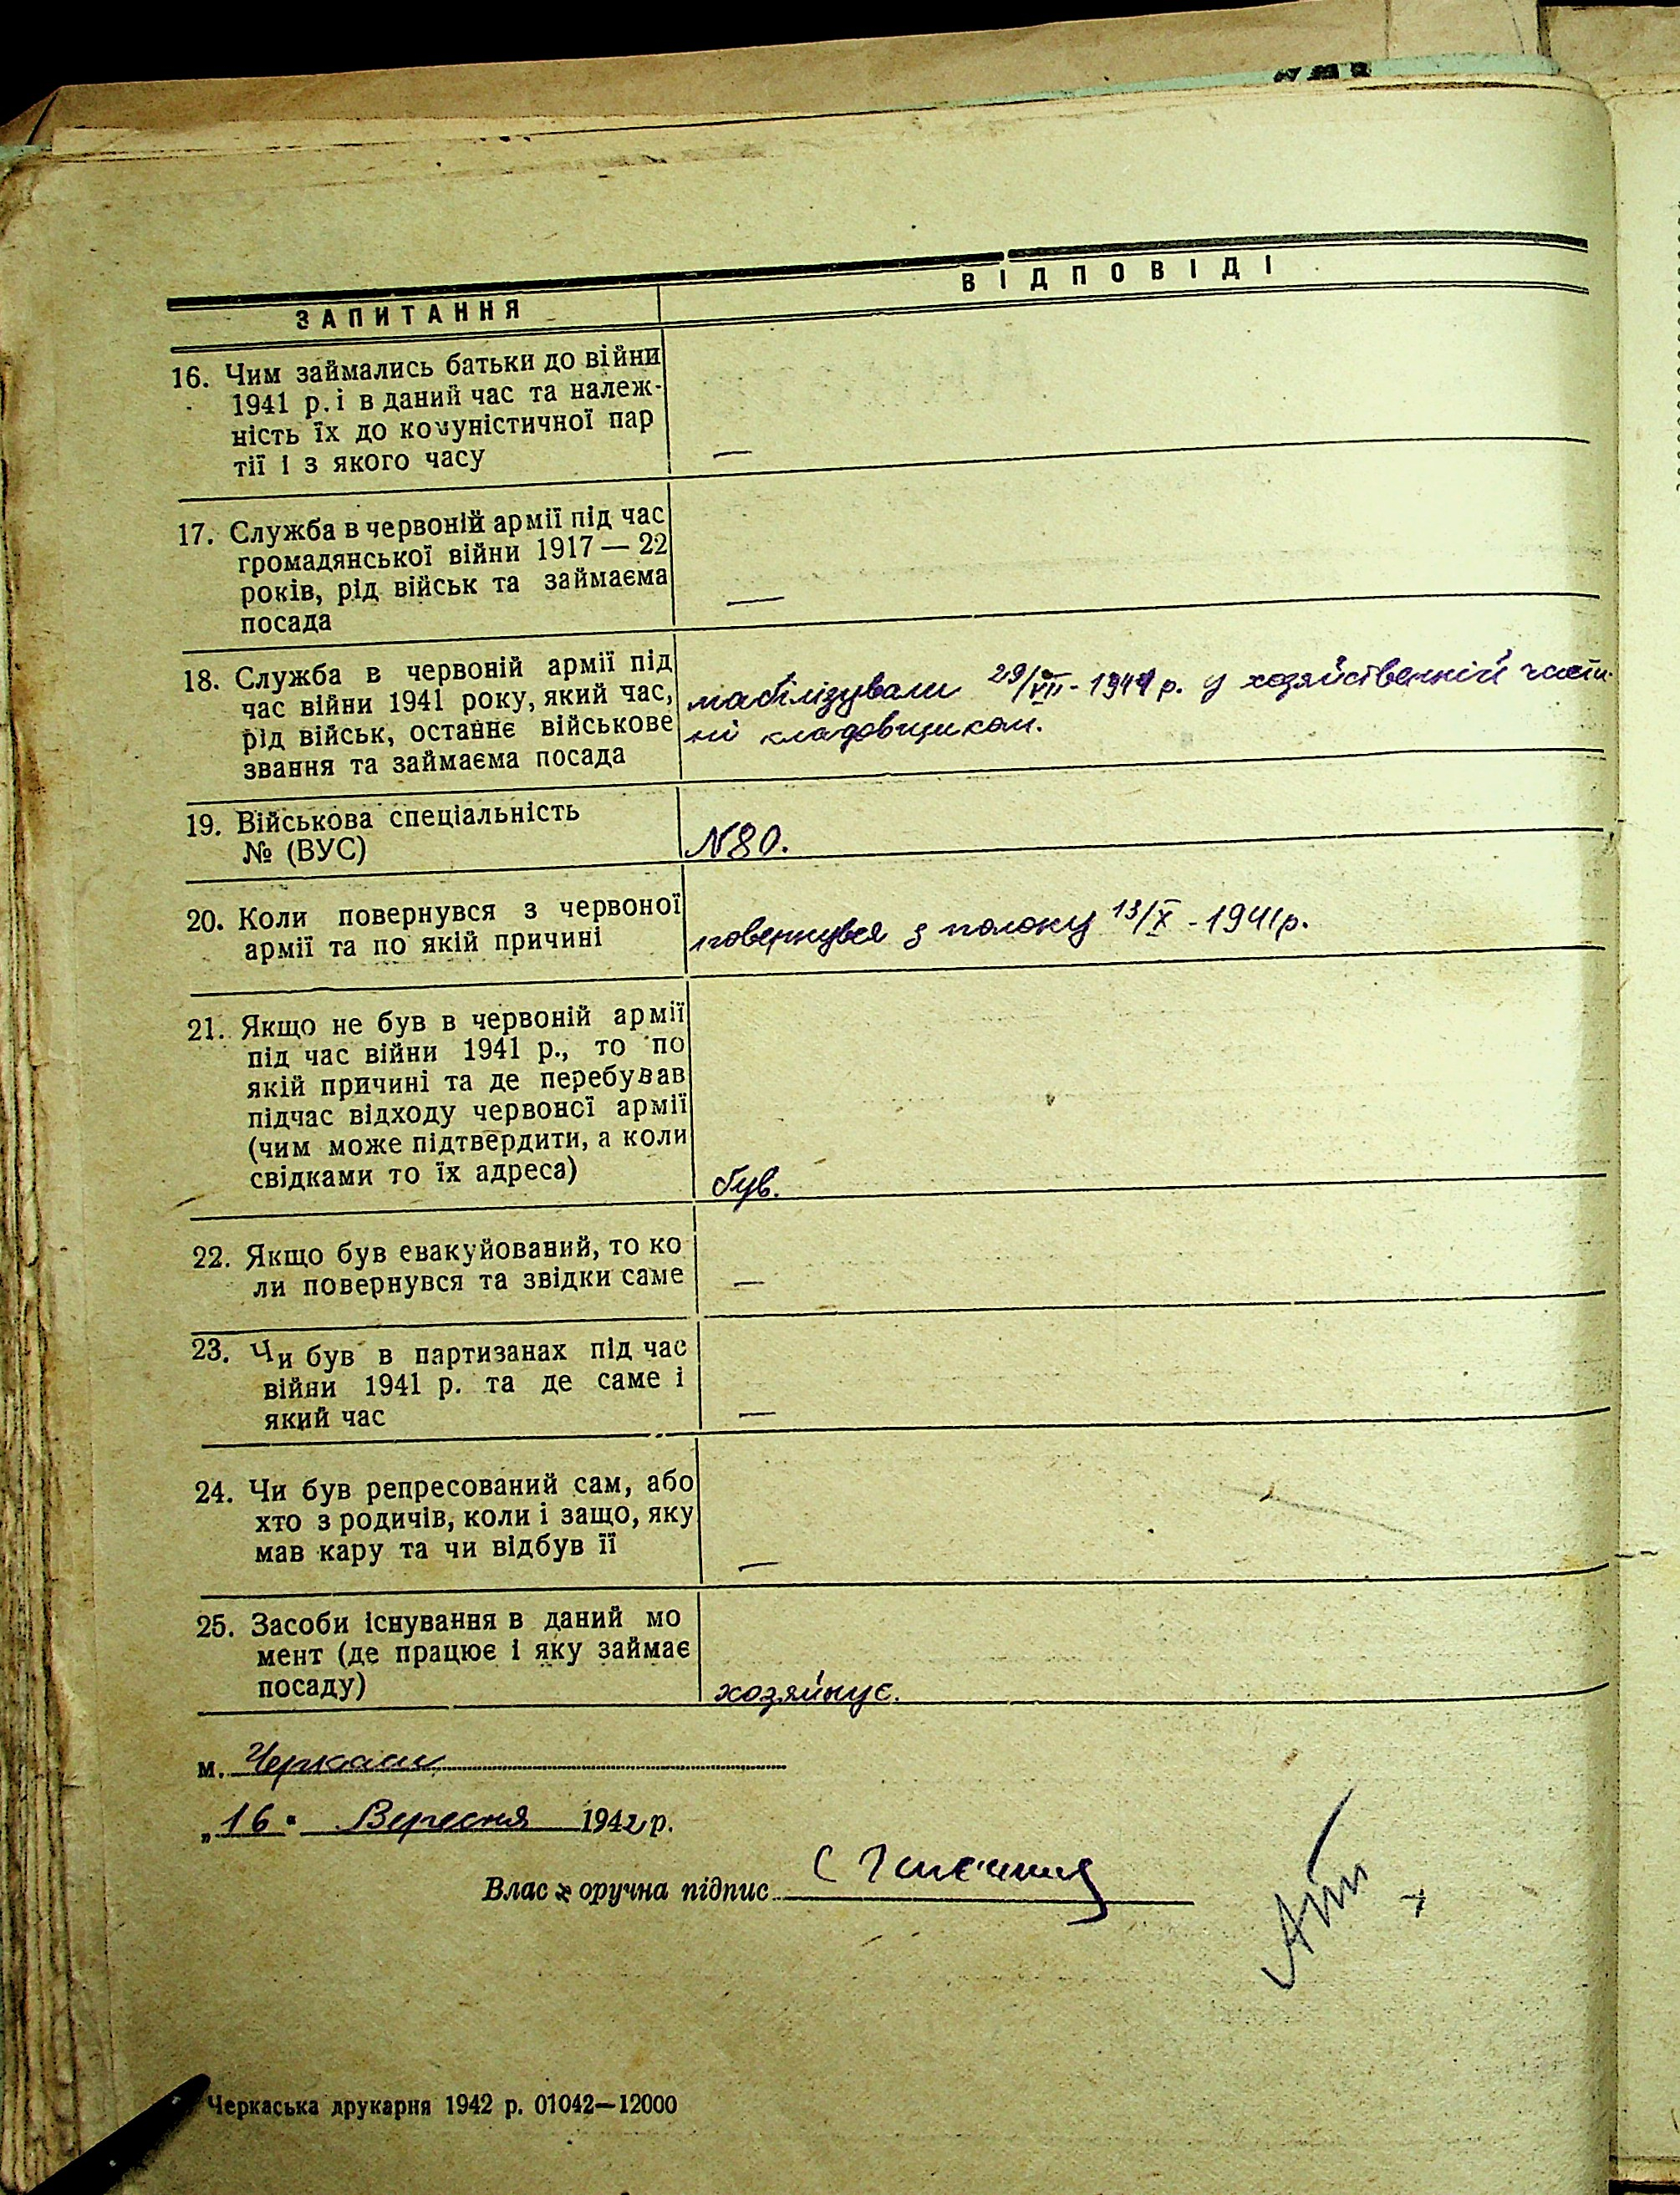 ЗАПИТАННЯ
ВІДПОВІДІ
16. Чим займались батьки до війни
1941 р. і в даний час та належ-
ність їх до комуністичної пар
тії і з якого часу
—
17. Служба в червоній армії під час
громадянської війни 1917 — 22
років, рід військ та займаєма
посада
—
18. Служба в червоній армії під
час війни 1941 року, який час,
рід військ, останнє військове
звання та займаєма посада
мобілізували 29/VIII - 1941 р. у хозяйственній части-
ні кладовщиком.
19. Військова спеціальність
№ (ВУС)
N80.
20. Коли повернувся з червоної
армії та по якій причині
повернувся з полону 13/X - 1941 р.
21. Якщо не був в червоній армії
під час війни 1941 р., то по
якій причині та де перебував
підчас відходу червоної армії
(чим може підтвердити, а коли
свідками то їх адреса)
був.
22. Якщо був евакуйований, то ко
ли повернувся та звідки саме
—
23. Чи був в партизанах під час
війни 1941 р. та де саме і
який час
—
24. Чи був репресований сам, або
хто з родичів, коли і защо, яку
мав кару та чи відбув її
—
25. Засоби існування в даний мо
мент (де працює і яку займає
посаду)
хозяйнує.
м. Черкаси
„16" Вересня 1942 р.
Власноручна підпис
Черкаська друкарня 1942 р. 01042—12000